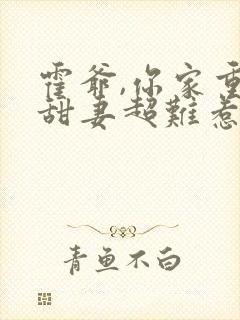 霍爷,你家重
甜妻超難惹
青鱼不白